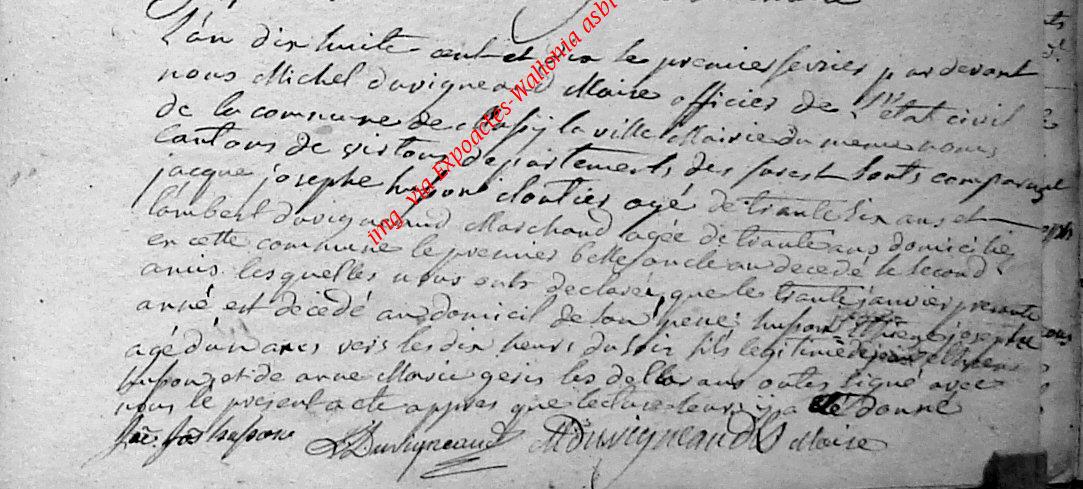 L'an dix huite cent et dix le premier fevrier par devant
nous Michel duvigneaud Maire officier de l'etat civil
de la commune de la ville Mairie du meme nom
Cantons de virtons departements des forest sonts comparu
jacque josephe husson cloutier agé de trante six ans et
lambert duvigneaud Marchand agée de trante ans domicilié
en cette commune le premier belle oncle au decedé le second
amis lesquelles nous onts declarés que le trante janvier presente
anné est décédé au domicil de son pere husson josephe
agé d'un ans vers les dix heurs du soir fils legitime de
husson et de anne Marie les declarans onts signé avec
nous le present acte appres que lecture leurs y a été donné
Jac. Jos husson LDuvigneaud MDuvigneaud Maire
img via Expoactes-Wallonia asbl